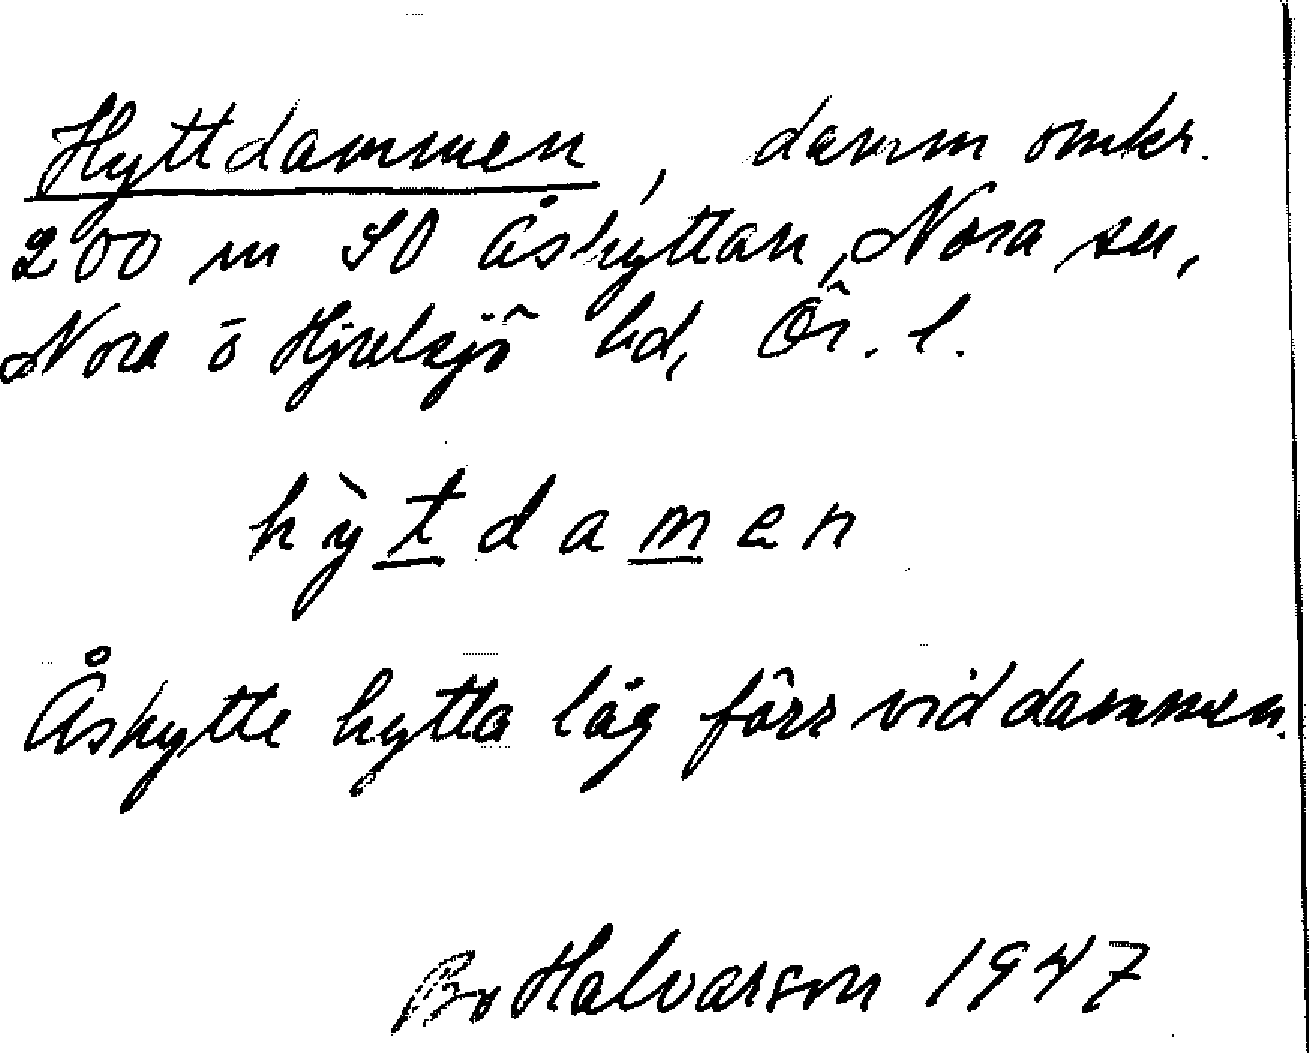 Hyttdammen, damm omkr.
200 m SO Åshyttan, Nora sn,
Nora o Hjulsjö bd, Ör. l.
hỳtdamen
Åshytte hytta låg förr vid dammen.
Bo Halvarson 1947